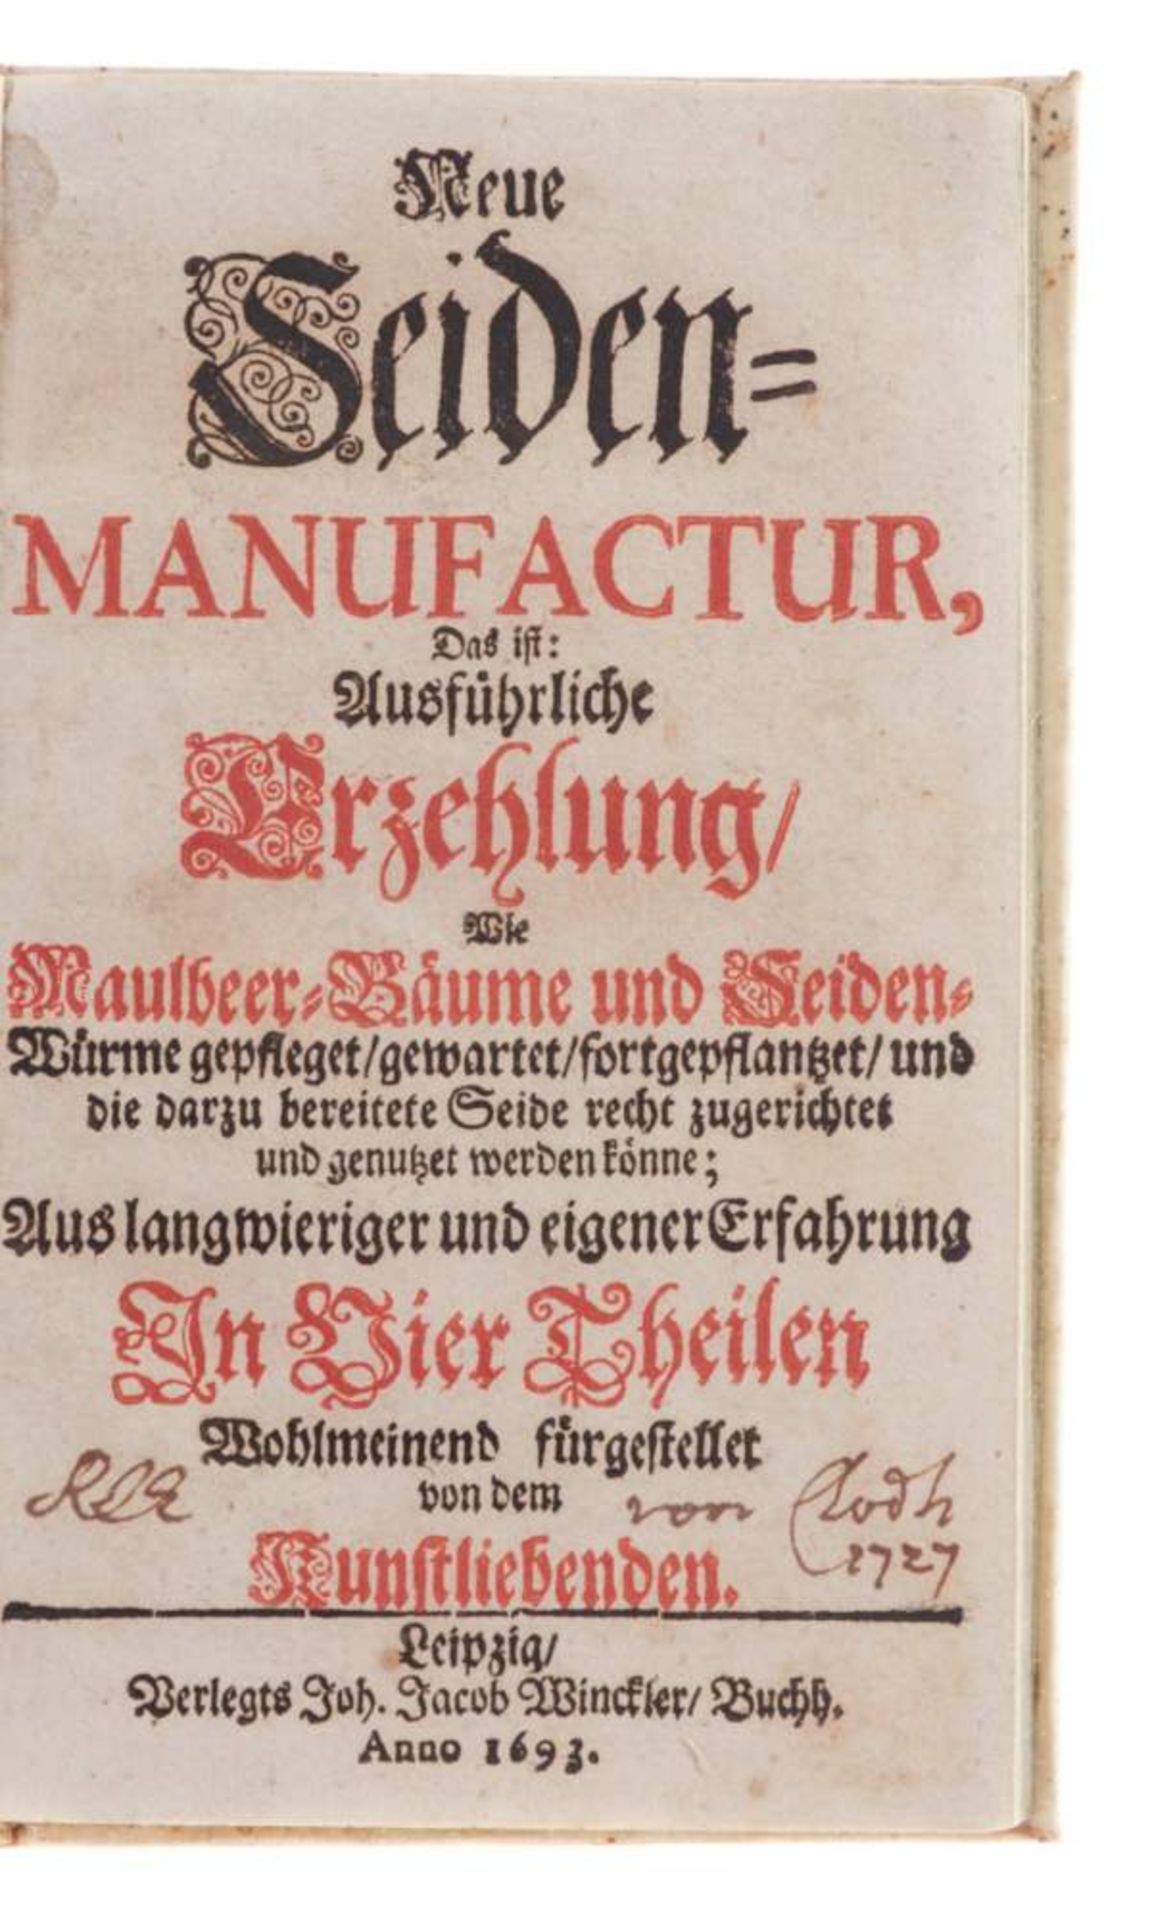 Neue
Seiden=
MANUFACTUR,
Das ist:
Ausführliche
Erzehlung/
Wie
Maulbeer-Bäume und Seiden-
Würme gepfleget/gewartet/fortgepflantzet/ und
die darzu bereitete Seide recht zugerichtet
und genutzet werden könne;
Aus langwieriger und eigener Erfahrung
In Vier Theilen
Wohlmeinend fürgestellet
von dem
von
1727
Kunstliebenden.
Leipzig/
Verlegts Joh. Jacob Winckler/ Buchh.
Anno 1693.